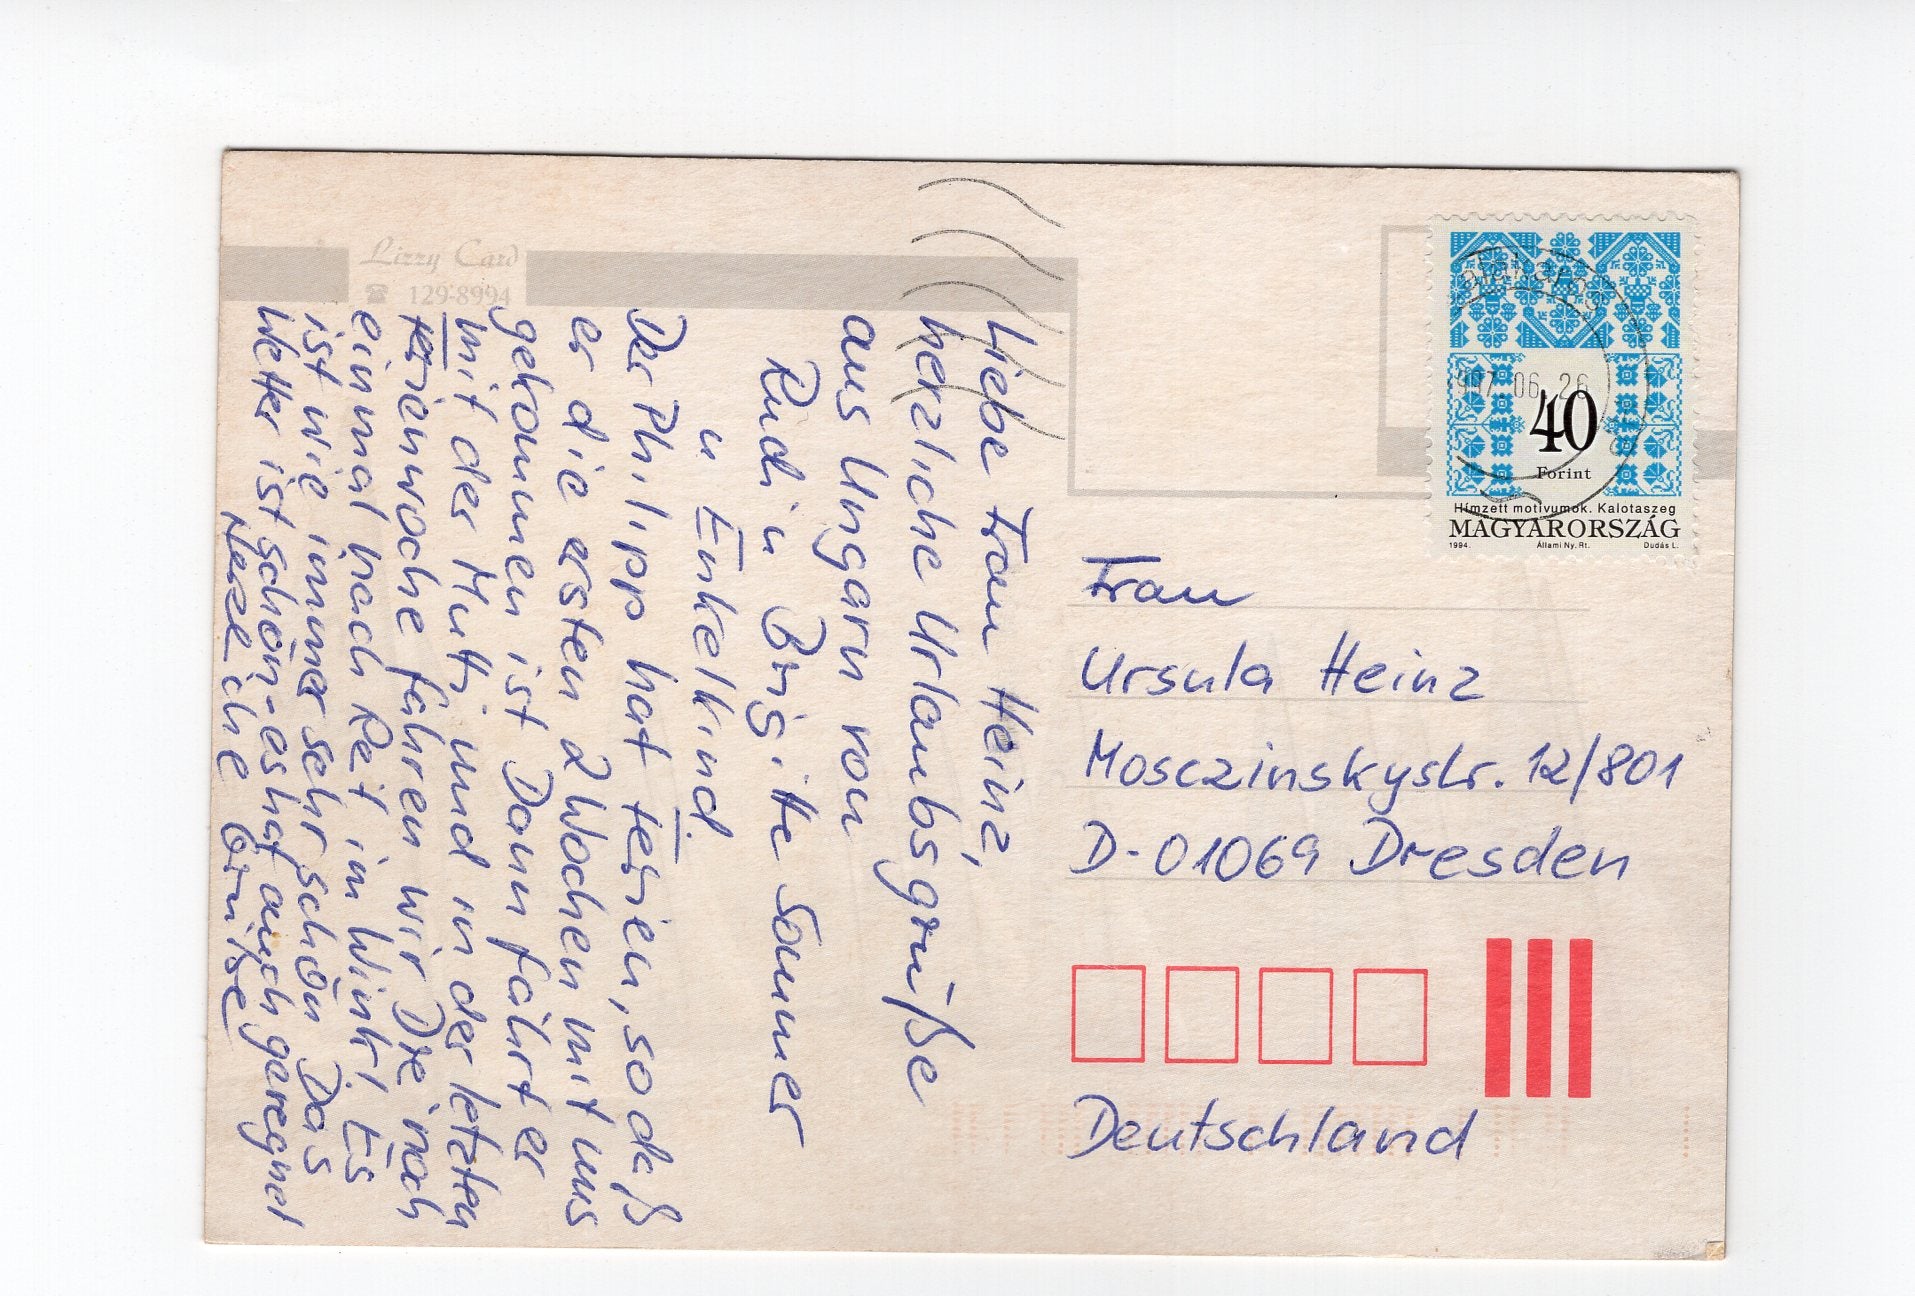 Lizzy Card
☎ 129-8994
Liebe Frau Heinz,
herzliche Urlaubsgrüße
aus Ungarn von
Rudi u Brigitte Sommer
u Enkelkind.
Der Philipp hat Ferien, sodaß
er die ersten 2 Wochen mit uns
gekommen ist Dann fährt er
mit der Mutti und in der letzten
Ferienwoche fahren wir Dre noch
einmal nach Reit im Winkl. Es
ist wie immer sehr schön Das
Wetter ist schön - es hat auch geregnet
Herzliche Grüße
1997.06.26
40
Forint
Hímzett motívumok. Kalotaszeg
MAGYARORSZÁG
1994. Állami Ny. Rt. Dudás L.
Frau
Ursula Heinz
Mosczinskystr. 12/801
D-01069 Dresden
Deutschland